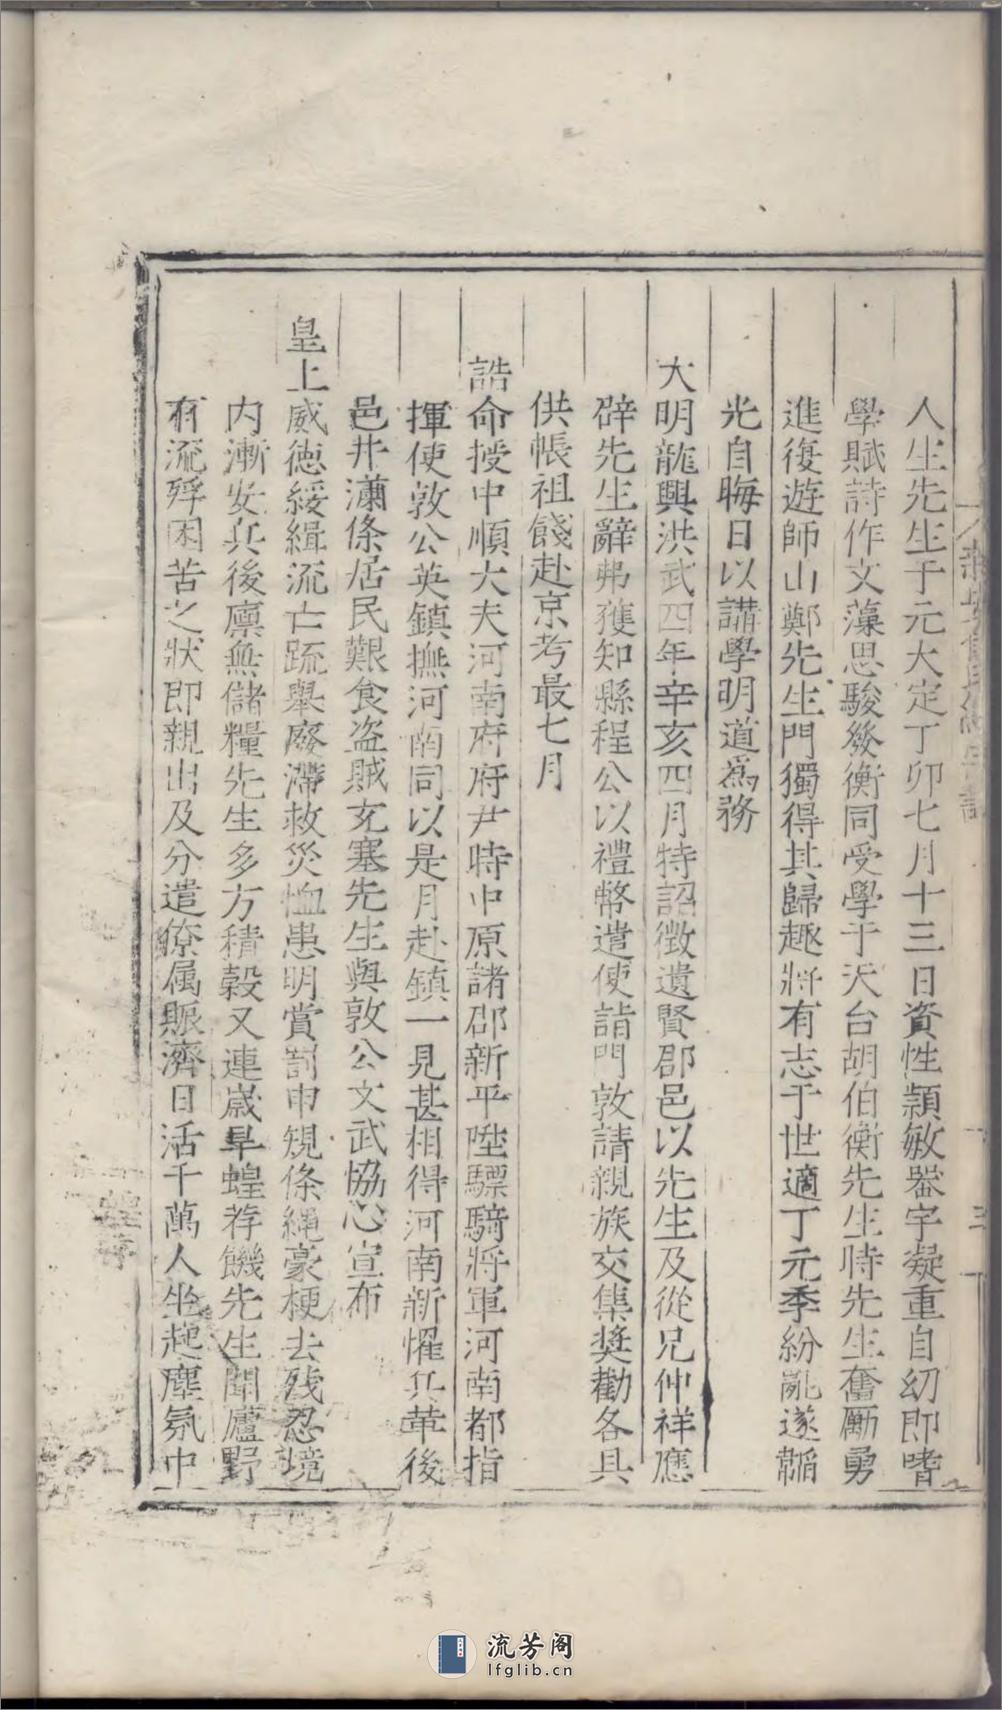 人生先生于元大定丁卯七月十三日資性穎敏器宇凝重自幼即嗜
學賦詩作文藻思駿發衡同受學于天台胡伯衡先生時先生奮勵勇
進復遊師山鄭先生門獨得其歸趣將有志于世適丁元季紛亂遂韜
光自晦日以講學明道爲務
大明龍興洪武四年辛亥四月特詔徵遺賢郡邑以先生及從兄仲祥應
辟先生辭弗獲知縣程公以禮幣遣使詣門敦請親族交集奨勸各具
供帳祖餞赴京考最七月
誥命授中順大夫河南府府尹時中原諸郡新平陞驃騎將軍河南都指
揮使敦公英鎮撫河南同以是月赴鎮一見甚相得河南新懼兵革後
邑井瀟條居民艱食盜賊充塞先生與敦公文武協心宣布
皇上威德綏緝流亡䟽舉廢滯救災恤患明賞罰申規條繩豪梗去殘忍境
内漸安兵後廪無儲糧先生多方積穀又連歲旱蝗荐饑先生聞廬野
有流殍困苦之狀即親出及分遣僚属賑濟日活千萬人坐起塵氛中
三
流芳阁
lfglib.cn